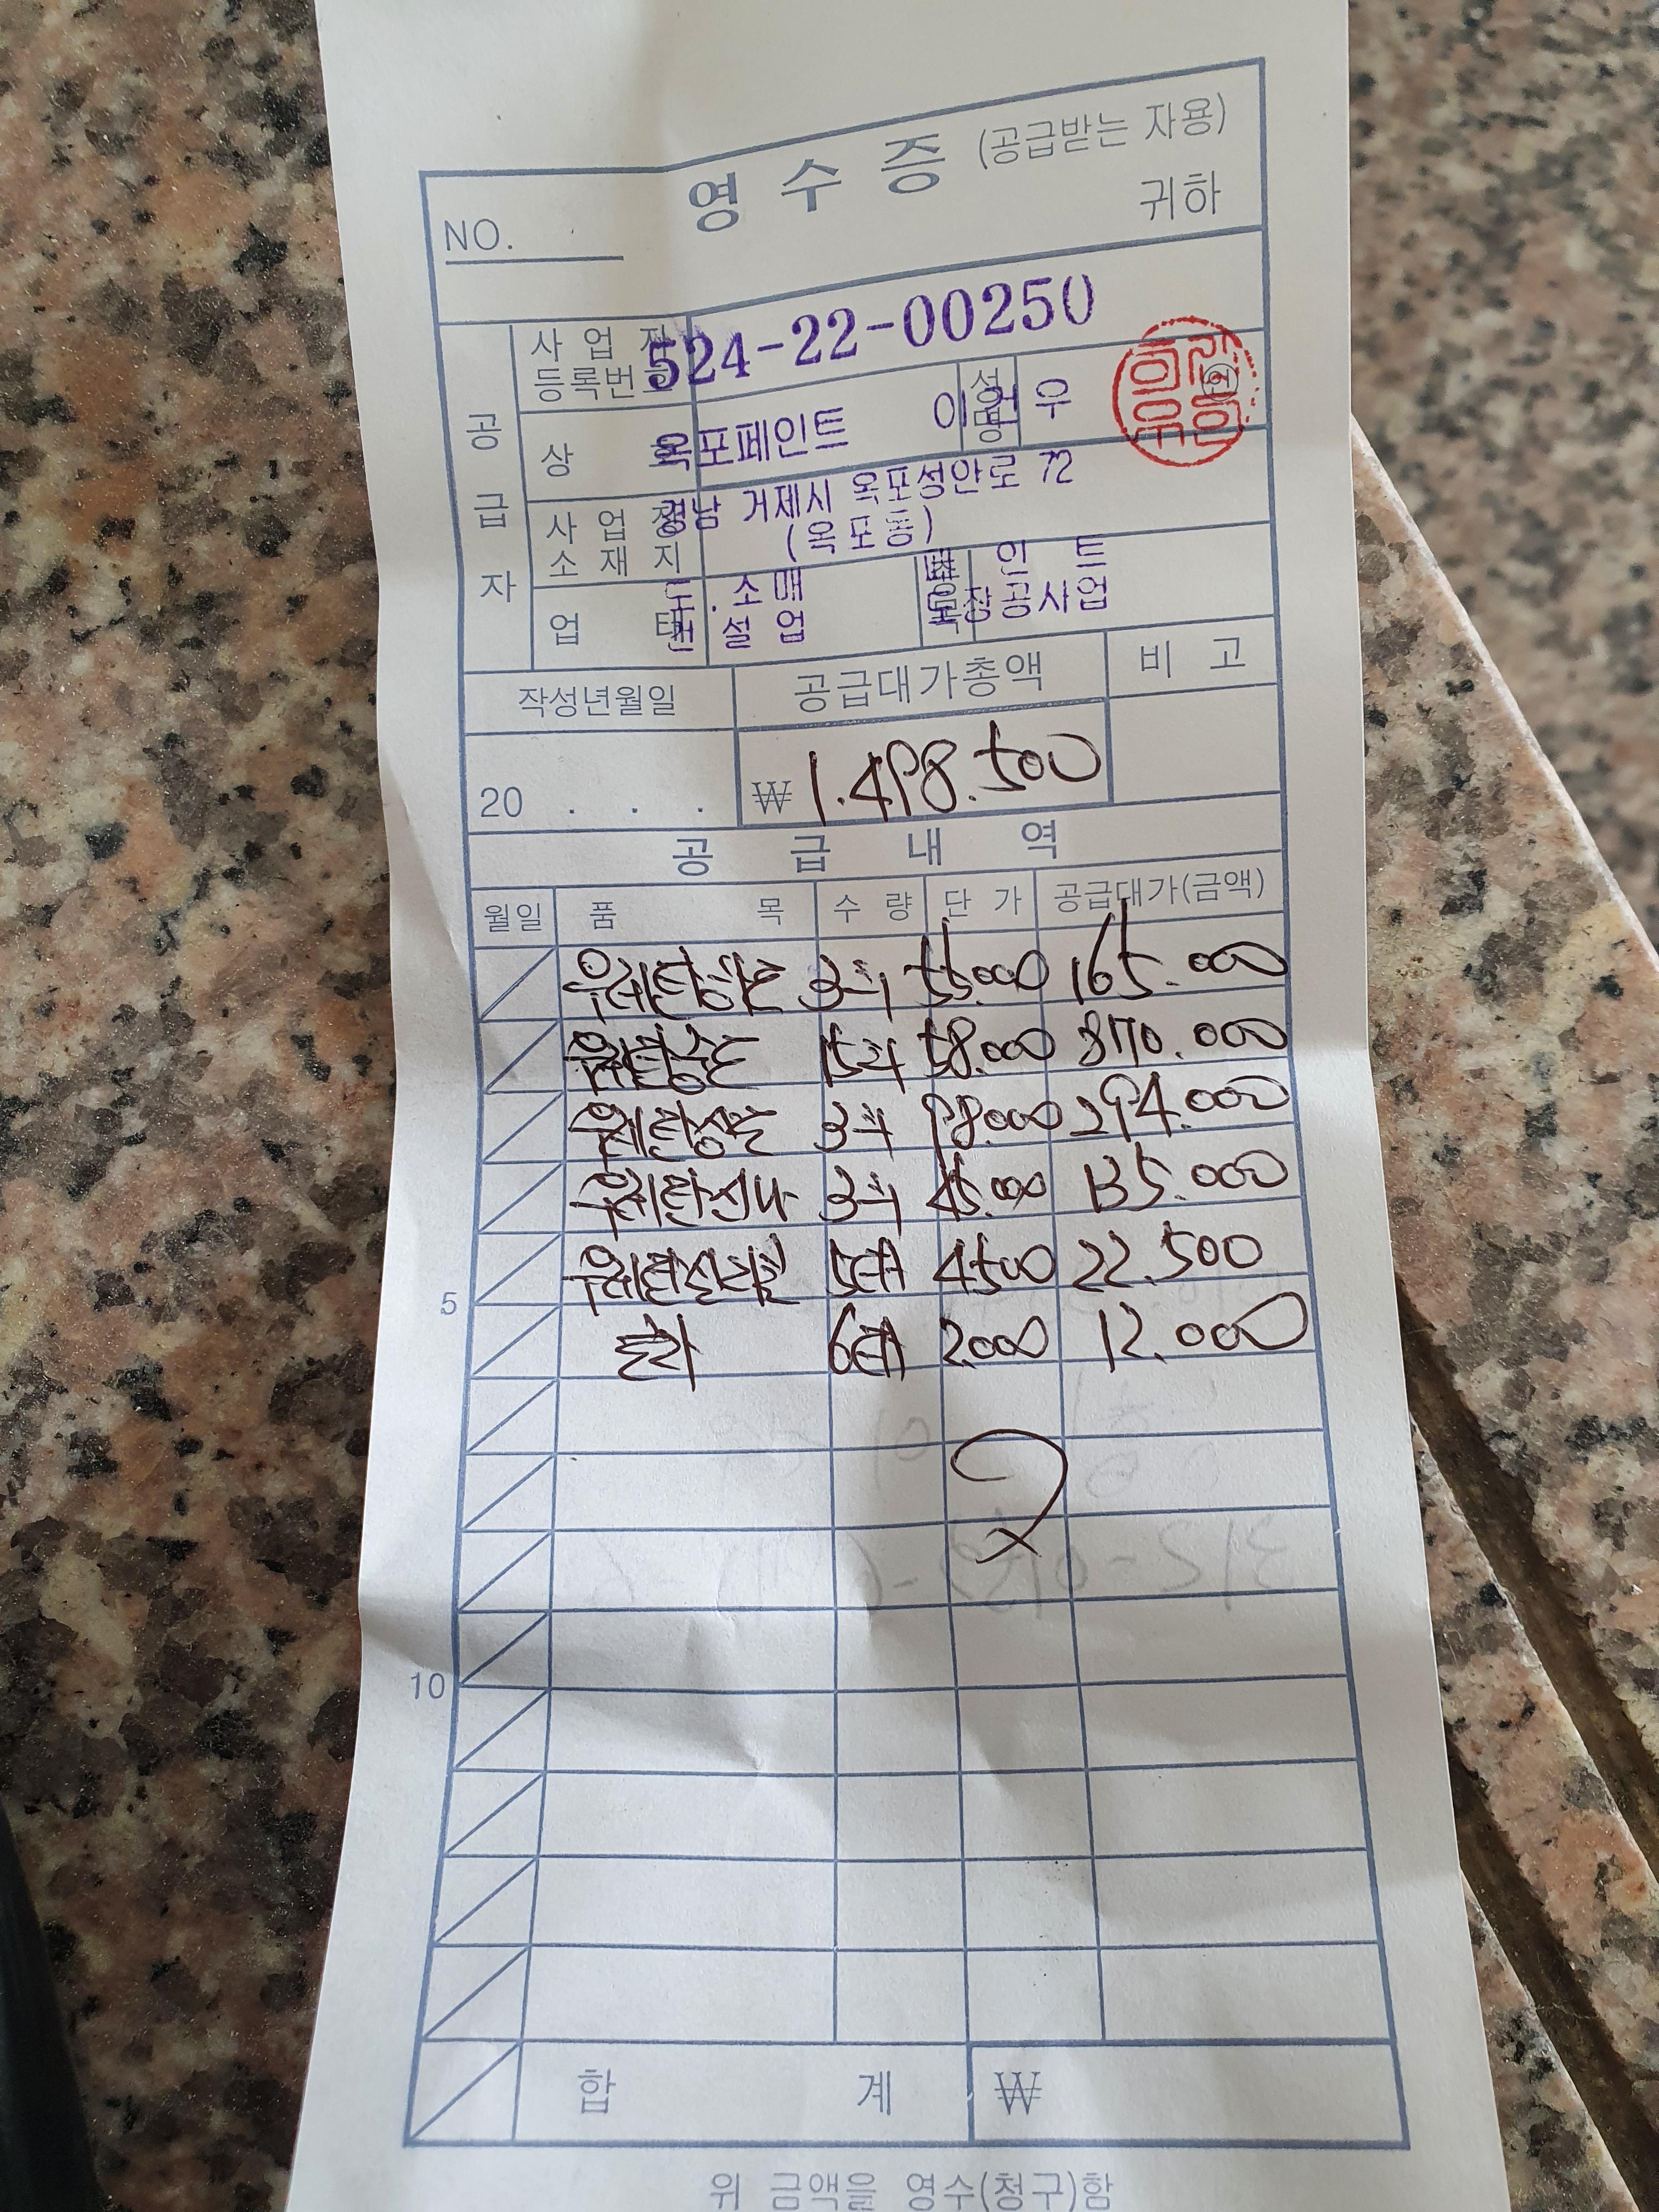 영 수 증 (공급받는 자용)
NO. 귀하
공급자
사업자등록번호 524-22-00250
상호 옥포페인트 성명 이언우 ㊞
사업장소재지 경남 거제시 옥포성안로 72
(옥포동)
업태 도.소매 종목 페인트
건설업 도장공사업
작성년월일 공급대가총액 비고
20 . . . ₩ 1.498.500
공급내역
월일 품목 수량 단가 공급대가(금액)
우레탄하도 3대 55.000 165.000
우레탄중도 15대 58.000 870.000
우레탄상도 3대 98.000 294.000
우레탄신나 3대 45.000 135.000
5 우레탄실리콘 5대 4500 22.500
6대 2.000 12.000
10
합계 ₩
위 금액을 영수(청구)함